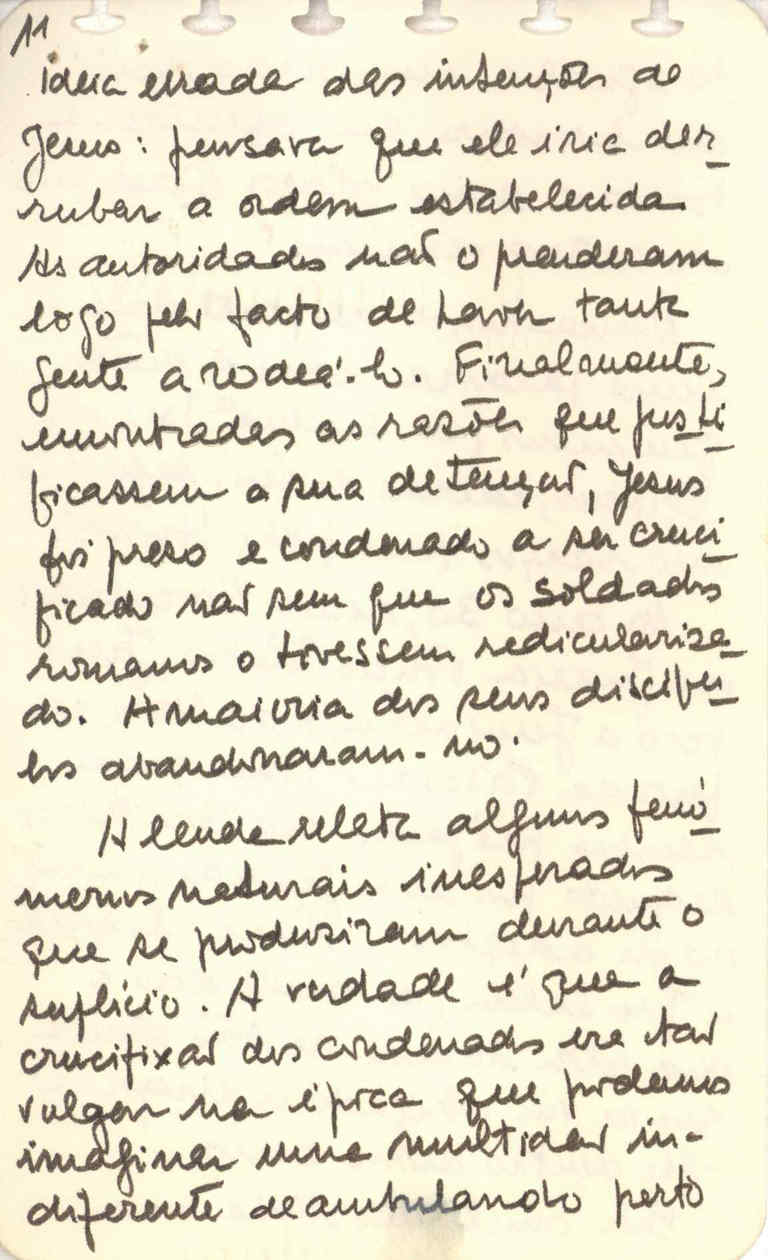 11
ideia errada das intenções de
Jesus: pensava que ele iria der-
rubar a ordem estabelecida
As autoridades não o prenderam
logo pelo facto de haver tanta
gente a rodeá-lo. Finalmente,
encontradas as razões que justi-
ficassem a sua detenção, Jesus
foi preso e condenado a ser cruci-
ficado não sem que os soldados
romanos o tivessem rediculariza-
do. A maioria dos seus discípu-
los abandonaram-no.
A lenda relata alguns fenó-
menos naturais inesperados
que se produziram durante o
suplício. A verdade é que a
crucifixão dos condenados era tão
vulgar na época que podemos
imaginar uma multidão in-
diferente deambulando perto